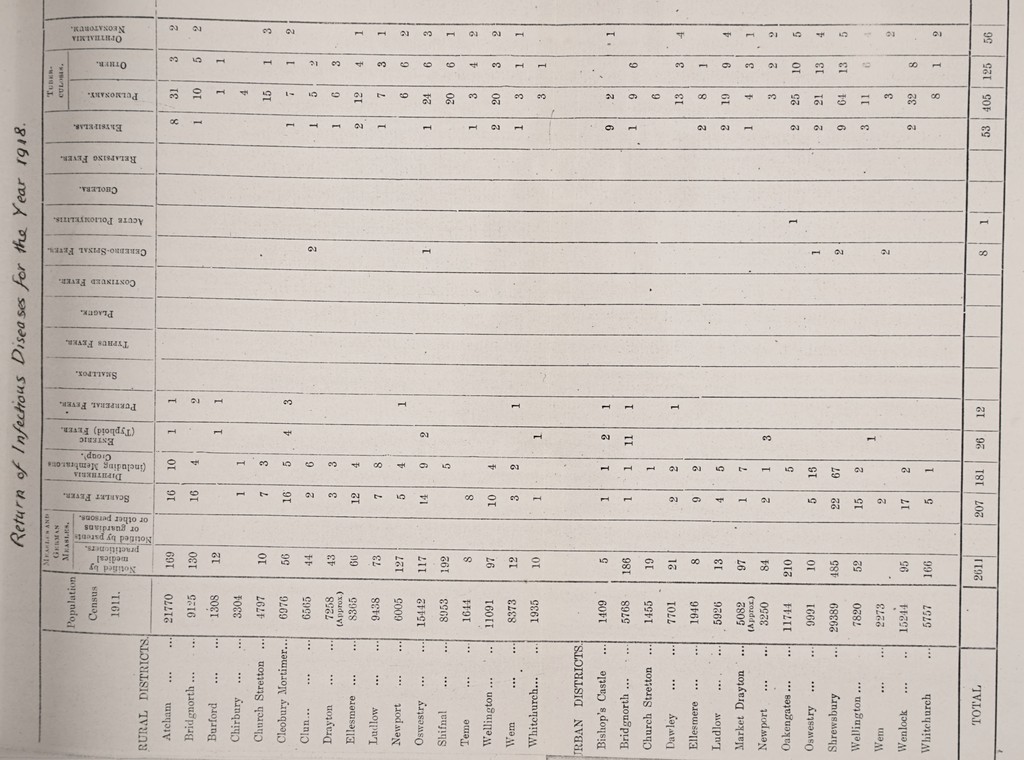 Return of Infectious Diseases for the Year 1918.
Population Census 1911.
MEASLES AND GERMAN MEASLES.
Notified by medical practitioners.
Notified by parents or guardians or other persons.
SCARLET FEVER.
DIPHTHERIA (including Membraneous Croup).
ENTERIC (Typhoid) FEVER.
PUERPERAL FEVER.
SMALLPOX.
TYPHUS FEVER.
PLAGUE.
CONTINUED FEVER.
CEREBRO-SPINAL FEVER.
ACUTE POLIOMYELITIS.
CHOLERA.
RELAPSING FEVER.
ERYSIPELAS.
TUBERCULOSIS.
PULMONARY.
OTHER.
OPHTHALMIA NEONATORUM.
RURAL DISTRICTS.
Atcham ... ... 21770 169 16 10 1 1 8 31 3 2
Bridgnorth ... ... 9125 130 16 4 2 1 10 5 2
Burford ... ... 1308 12 1 1 1 1
Chirbury ... ... 3304 1 1 4
Church Stretton ... 4797 10 7 3 15 1 3
Cleobury Mortimer... 6976 56 16 5 4 3 1 7 1 2
Clun... ... ... 6565 44 2 6 2 1 5 2
Drayton ... ... 7258 (Approx.) 43 3 3 1 6 3
Ellesmere ... ... 8365 66 12 4 2 12 4 1
Ludlow ... ... 9438 73 7 8 1 7 3 1
Newport ... ... 6005 127 5 4 1 6 6 2
Oswestry ... ... 15442 117 14 9 2 1 1 24 6 3
Shifnal ... ... 8953 192 5 20 6 1
Teme ... ... 1644 8 8 1 3 4 2
Wellington ... .. 11091 97 10 4 2 20 3 2
Wem ... ... 8373 12 3 2 1 1 3 1 1
Whitchurch... ... 1935 10 1 1 3 1
URBAN DISTRICTS.
Bishop's Castle ... 1409 5 1 1 2 1 9 2 1
Bridgnorth ... ... 5768 186 1 1 11 1 1 9 6
Church Stretton ... 1455 19 1 6
Dawley ... ... 7701 21 2 2 1 13 3 4
Ellesmere ... ... 1946 8 9 2 2 8 1
Ludlow ... ... 5926 13 4 5 2 19 9 4
Market Drayton ... 5082 (Approx.) 97 1 7 1 4 3 1
Newport ... ... 3250 84 2 1 3 3 2 2
Oakengates ... ... 11744 210 5 1 2 25 10 5
Oswestry ... ... 9991 10 5 16 1 2 21 13 4
Shrewsbury ... 29389 485 22 67 2 9 64 13 5
Wellington ... ... 7820 52 15 2 1 3 11
Wem ... ... 2273 2 2 3 2
Wenlock ... .. 15244 95 17 2 2 32 8
Whitchurch ... 5757 166 5 1 8 1 2
TOTAL 2611 207 181 26 12 8 1 53 405 125 56